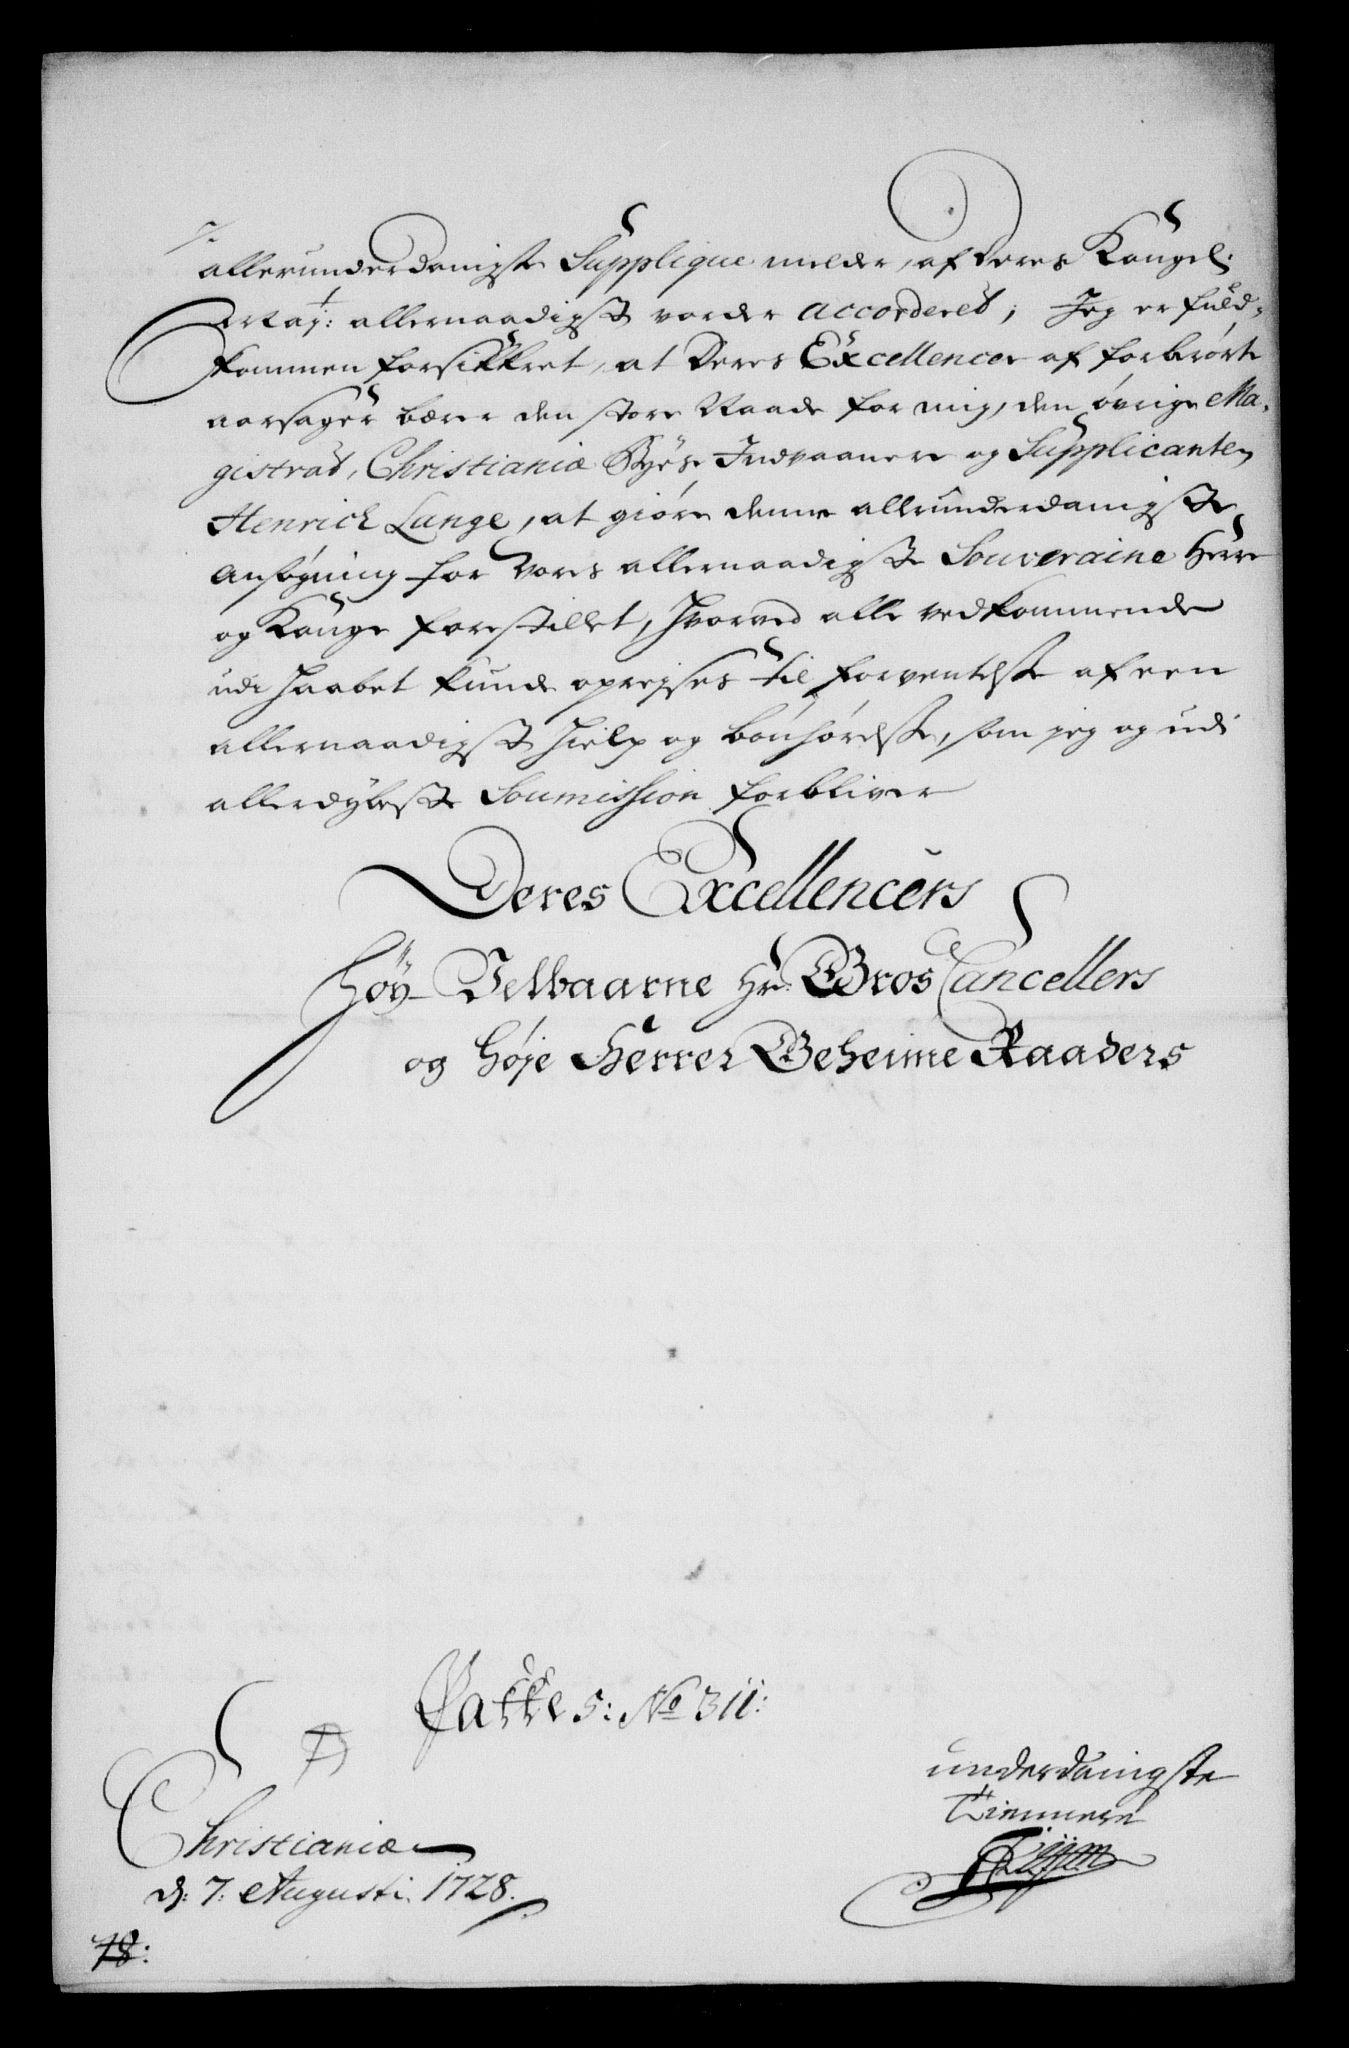 allerunderdanigste Supplique melder, af Deres Kongel:
May:t allernaadigst vorder accorderet; Jeg er fuld-
kommen forsikkret, at Deres Excellencer af forberørte
aarsager bærer den store Naade for mig, den øvrige Ma-
gistrat, Christianiæ Byes Indvaanere og Supplicanten
Henrich Lange, at giøre denne allerunderdanigste
Ansøgning for Vores allernaadigste Souveraine Herre
og Konge forestillet, hvorved alle vedkommende
udi haabet kunde oprejses til forventelse af een
allernaadigst hielp og bønhørelse, som jeg og udi
allerdybeste Soumission forbliver
Deres Excellencers
Høy-Velbaarne Hr: Gros Cancellers
og høje Herrer Geheime Raaders
Pakke 5: No 311:
underdanigste
Tiennere
Christianiæ
d: 7: Augusti 1728.
78: